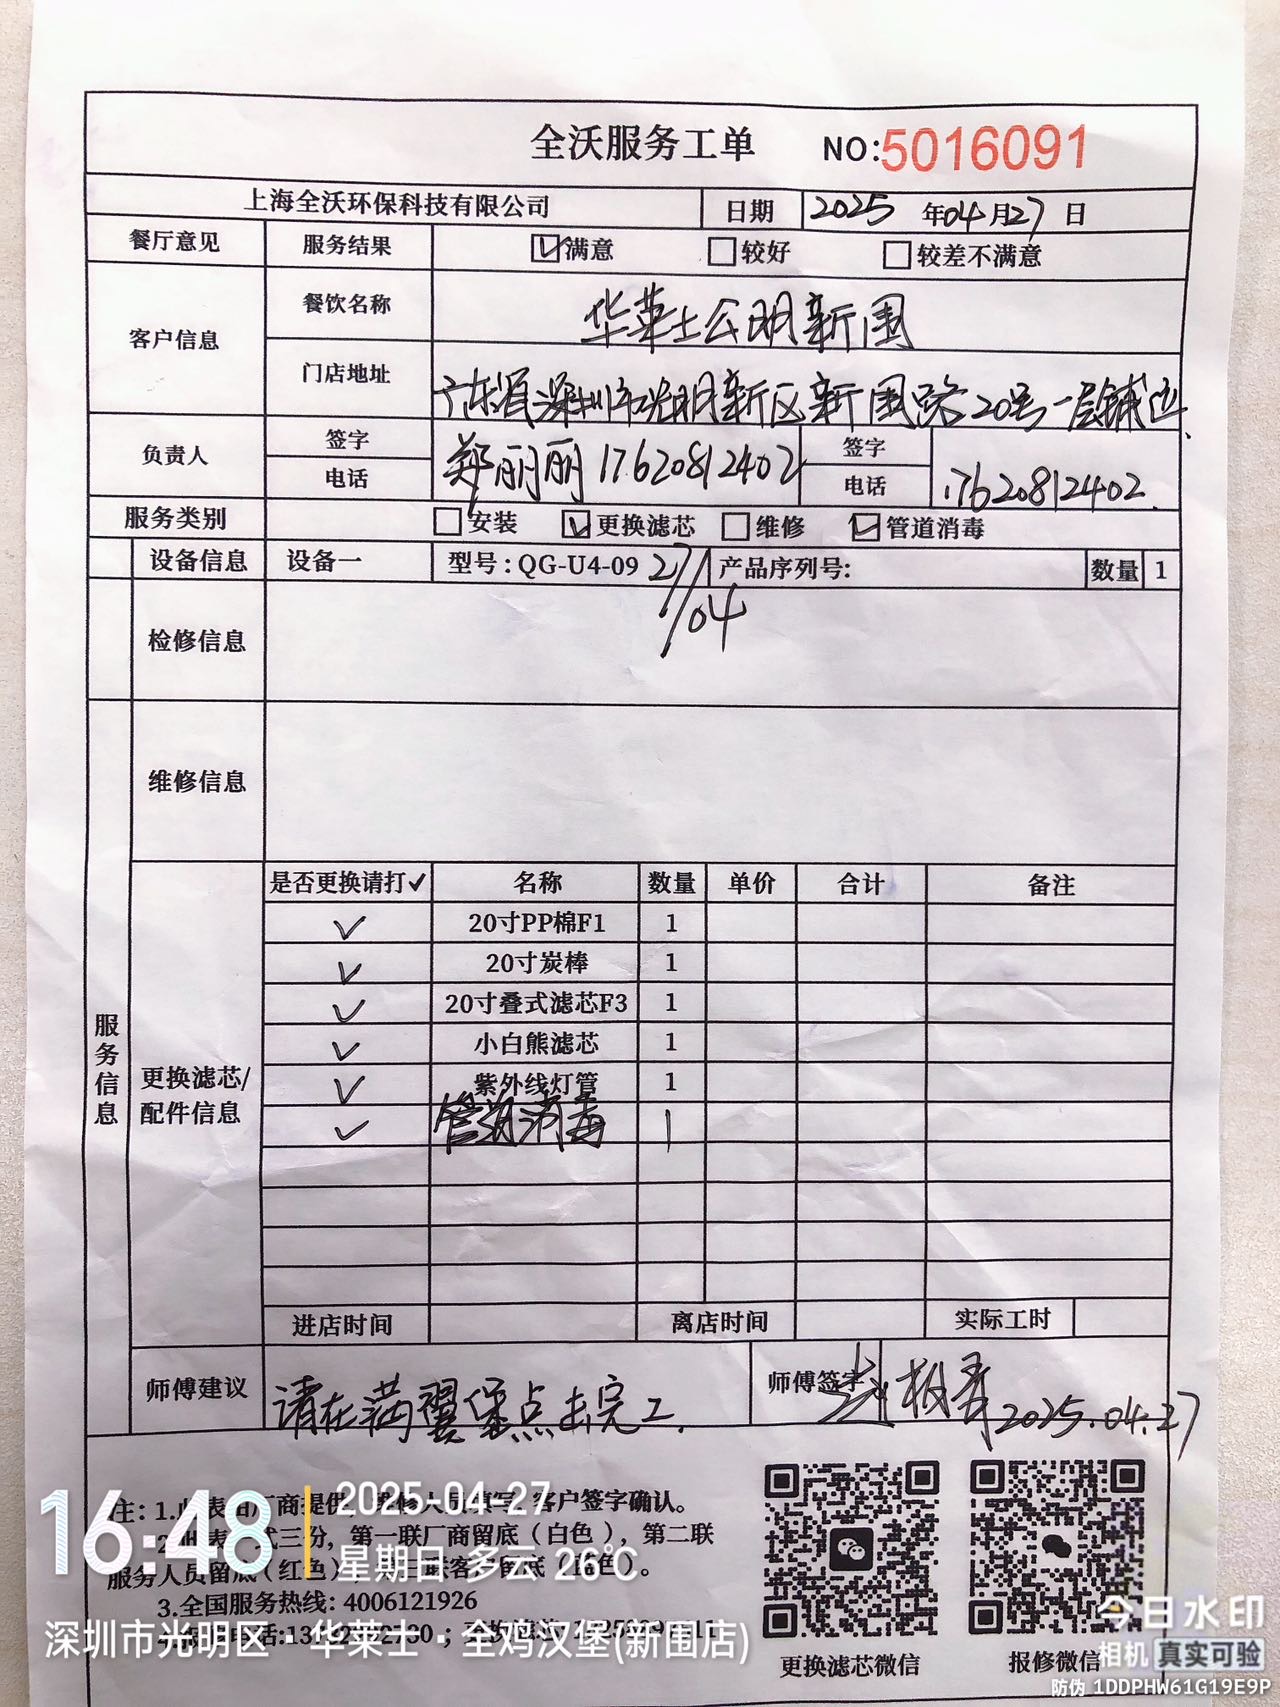 全沃服务工单 NO:5016091
上海全沃环保科技有限公司 日期 2025 年04月27日
餐厅意见 服务结果 ☑满意 □较好 □较差不满意
客户信息 餐饮名称 华莱士公明新围
门店地址 广东省深圳市光明新区新围路20号一层铺位
负责人 签字 电话 郑丽丽 17620812402 签字 电话 17620812402.
服务类别 □安装 ☑更换滤芯 □维修 ☑管道消毒
设备信息 设备一 型号:QG-U4-09 27/04 产品序列号: 数量 1
检修信息
维修信息
服务信息
更换滤芯/配件信息
是否更换请打✓ 名称 数量 单价 合计 备注
✓ 20寸PP棉F1 1
✓ 20寸炭棒 1
✓ 20寸叠式滤芯F3 1
✓ 小白熊滤芯 1
✓ 紫外线灯管 1
✓ 管道消毒 1
进店时间 离店时间 实际工时
师傅建议 请在满翼保点击完工. 师傅签字 2025.04.27
注: 1.此表由厂商提供, 维修人员填写, 客户签字确认。
2.此表一式三份, 第一联厂商留底（白色）, 第二联
服务人员留底(红色), 客留底（蓝色）。
3.全国服务热线: 4006121926
更换滤芯微信 报修微信
16:48 2025-04-27
星期日 多云 26℃
深圳市光明区·华莱士·全鸡汉堡(新围店)
今日水印
相机 真实可验
防伪 1DDPHW61G19E9P